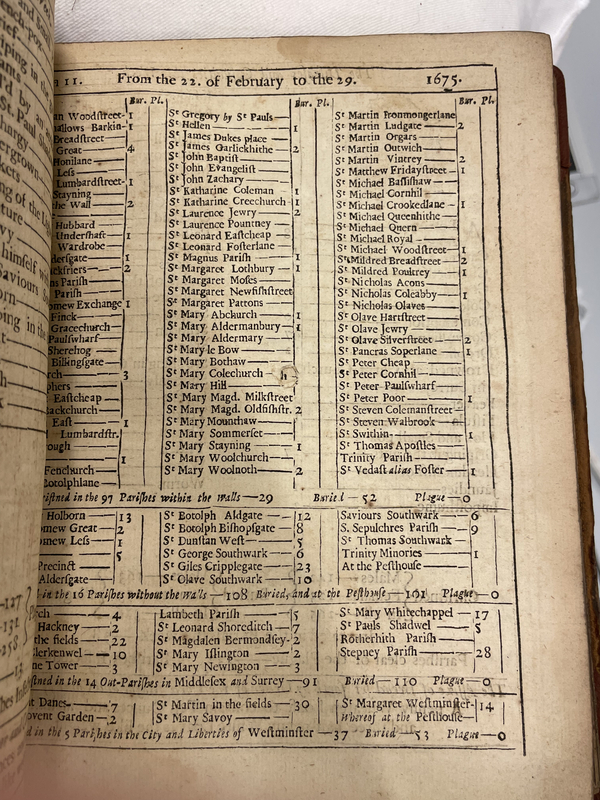 11. From the 22. of February to the 29. 1675.
Bur. Pl.
Woodſtreet- 1
Barkin- 1
Breadſtreet
Great 4
Honilane
Leſs 1
Lumbardſtreet- 1
Stayning
the Wall 2
Hubbard
Underſhaft 1
Wardrobe
1
2
Pariſh
Pariſh
Exchange 1
Finck
Gracechurch
Paulſwharf
Sherehog
Billingſgate
3
Eaſtcheap
Eaſt 1
Lumbardſtr.
1
Fenchurch
Botolphlane
Bur. Pl.
Sᵗ Gregory by Sᵗ Pauls
Sᵗ Hellen 1
Sᵗ James Dukes place
Sᵗ James Garlickhithe 2
Sᵗ John Baptiſt
Sᵗ John Evangeliſt
Sᵗ John Zachary
Sᵗ Katharine Coleman 1
Sᵗ Katharine Creechurch 1
Sᵗ Laurence Jewry 2
Sᵗ Laurence Pountney
Sᵗ Leonard Eaſtcheap
Sᵗ Leonard Foſterlane
Sᵗ Magnus Pariſh 1
Sᵗ Margaret Lothbury 1
Sᵗ Margaret Moſes
Sᵗ Margaret Newfiſhſtreet
Sᵗ Margaret Pattons
Sᵗ Mary Abchurch 1
Sᵗ Mary Aldermanbury 1
Sᵗ Mary Aldermary
Sᵗ Mary le Bow
Sᵗ Mary Bothaw
Sᵗ Mary Colechurch
Sᵗ Mary Hill
Sᵗ Mary Magd. Milkſtreet
Sᵗ Mary Magd. Oldfiſhſtr. 2
Sᵗ Mary Mounthaw
Sᵗ Mary Sommerſet
Sᵗ Mary Stayning 1
Sᵗ Mary Woolchurch
Sᵗ Mary Woolnoth 2
Bur. Pl.
Sᵗ Martin Ironmongerlane
Sᵗ Martin Ludgate 2
Sᵗ Martin Orgars
Sᵗ Martin Outwich
Sᵗ Martin Vintrey 2
Sᵗ Matthew Fridayſtreet 1
Sᵗ Michael Baſſiſhaw
Sᵗ Michael Cornhil
Sᵗ Michael Crookedlane 1
Sᵗ Michael Queenhithe
Sᵗ Michael Quern
Sᵗ Michael Royal
Sᵗ Michael Woodſtreet 1
Sᵗ Mildred Breadſtreet 2
Sᵗ Mildred Poultrey 1
Sᵗ Nicholas Acons
Sᵗ Nicholas Coleabby 1
Sᵗ Nicholas Olaves
Sᵗ Olave Hartſtreet
Sᵗ Olave Jewry
Sᵗ Olave Silverſtreet 2
Sᵗ Pancras Soperlane 1
Sᵗ Peter Cheap
Sᵗ Peter Cornhil
Sᵗ Peter Paulſwharf
Sᵗ Peter Poor 1
Sᵗ Steven Colemanſtreet
Sᵗ Steven Walbrook
Sᵗ Swithin 1
Sᵗ Thomas Apoſtles
Trinity Pariſh
Sᵗ Vedaſt alias Foſter 1
in the 97 Pariſhes within the walls 29 Buried 52 Plague 0
Holborn 13
Great 2
Leſs 1
5
Precinct
Alderſgate
Sᵗ Botolph Aldgate 12
Sᵗ Botolph Biſhopſgate 8
Sᵗ Dunſtan Weſt 5
Sᵗ George Southwark 6
Sᵗ Giles Cripplegate 23
Sᵗ Olave Southwark 10
Saviours Southwark 6
S. Sepulchres Pariſh 9
Sᵗ Thomas Southwark
Trinity Minories 1
At the Peſthouſe
in the 16 Pariſhes without the Walls 108 Buried, and at the Peſthouſe 101 Plague 0
4
Hackney 2
the fields 22
Clerkenwel 10
Tower 3
Lambeth Pariſh 5
Sᵗ Leonard Shoreditch 7
Sᵗ Magdalen Bermondſey- 2
Sᵗ Mary Iſlington 2
Sᵗ Mary Newington 3
Sᵗ Mary Whitechappel 17
Sᵗ Pauls Shadwel 5
Rotherhith Pariſh
Stepney Pariſh 28
in the 14 Out-Pariſhes in Middleſex and Surrey 91 Buried 110 Plague 0
Danes 7
Garden 2
Sᵗ Martin in the fields 30
Sᵗ Mary Savoy
Sᵗ Margaret Weſtminſter- 14
Whereof at the Peſthouſe
in the 5 Pariſhes in the City and Liberties of Weſtminſter 37 Buried 53 Plague 0